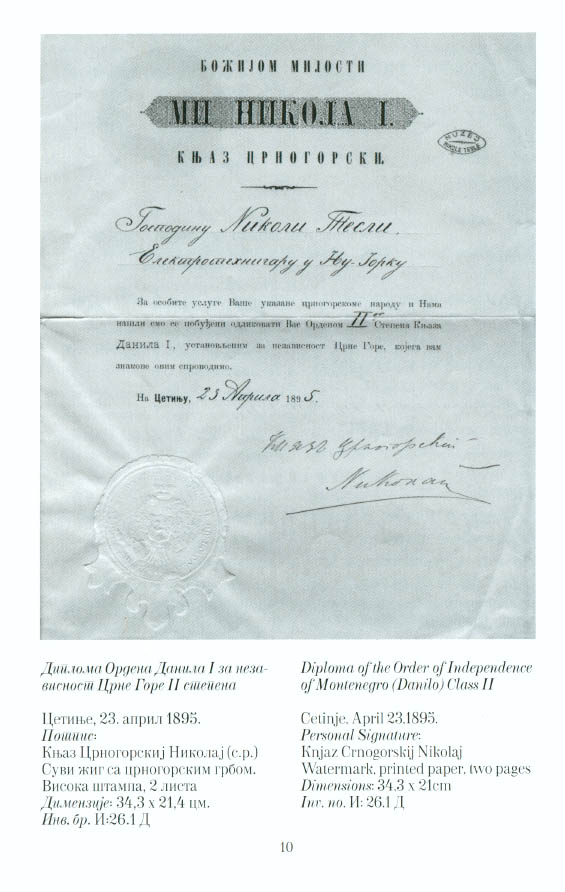 БОЖИЈОМ МИЛОСТИ
МИ НИКОЛА I.
КЊАЗ ЦРНОГОРСКИ.
МУЗЕЈ
НИКОЛЕ ТЕСЛЕ
Господину Николи Тесли,
Електротехничару у Њу-Јорку
За особите услуге Ваше указане црногорскоме народу и Нама
нашли смо се побуђени одликовати Вас Орденом II ог Степена Књаза
Данила I, установљеним за независност Црне Горе, којега вам
знакове овим спроводимо.
На Цетињу, 23 Априла 1895.
Књазъ Црногорскій
Николай
Диплома Ордена Данила I за неза-
висност Црне Горе II степена
Цетиње, 23. април 1895.
Потпис:
Књаз Црногорскиј Николај (с.р.)
Суви жиг са црногорским грбом.
Висока штампа, 2 листа
Димензије: 34,3 x 21,4 цм.
Инв. бр. И:26.1 Д
Diploma of the Order of Independence
of Montenegro (Danilo) Class II
Cetinje, April 23.1895.
Personal Signature:
Knjaz Crnogorskij Nikolaj
Watermark, printed paper, two pages
Dimensions: 34.3 x 21cm
Inv. no. И: 26.1 Д
10